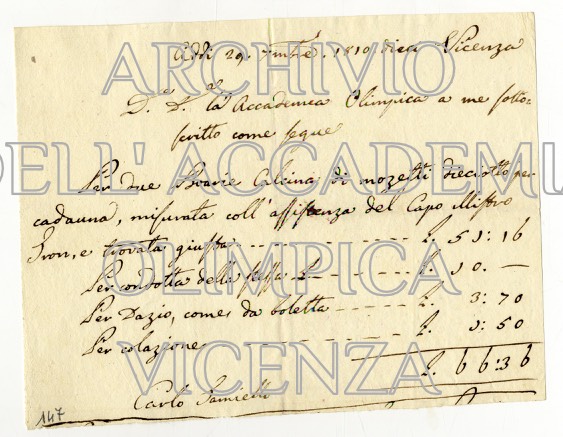 Addi 29. 7mbre. 1810 dieci Vicenza
D.e D.r la Accademia Olimpica a me sotto=
scritto come segue
Per due Boarie Calcina di mozetti dieciotto per
cadauna, misurata coll'assistenza del Capo Mistro
e trovata giusta - - - L. 51:16
Per condotta della stessa - - - L. 10. —
Per Dazio, come da boletta - - - L. 3:70
Per colazione - - - L. 1:50
L. 66:36
Carlo
147
ARCHIVIO
DELL'ACCADEMIA
OLIMPICA
VICENZA